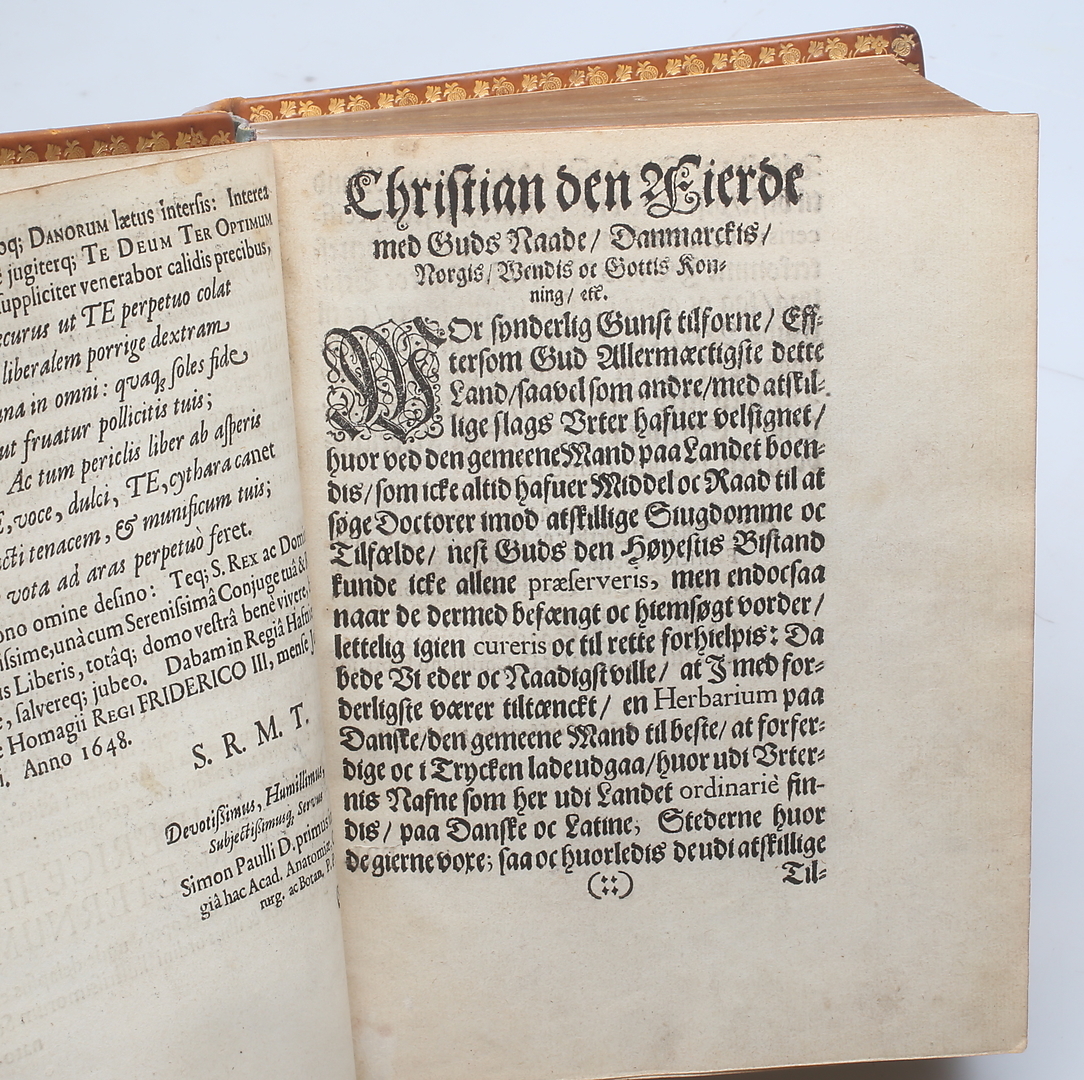 oq; DANORUM lætus intersis: Interea
jugiterq; TE DEUM TER OPTIMUM
suppliciter venerabor calidis precibus,
securus ut TE perpetuo colat
liberalem porrige dextram
in omni: quaq; soles fide
ut fruatur pollicitis tuis;
Ac tum periclis liber ab asperis
voce, dulci, TE, cythara canet
tenacem, & munificum tuis;
vota ad aras perpetuò feret.
omine desino: Teq; S. REX ac
unà cum Serenissimâ Conjuge tuâ &
Liberis, totâq; domo vestrâ bene vivere,
salvereq; jubeo. Dabam in Regiâ
Homagii REGI FRIDERICO III, mense
Anno 1648.
S. R. M. T.
Devotißimus, Humillimus,
Subjectißimusq, Servus
Simon Paulli D. primus
giâ hac Acad. Anatomiæ,
ac Botan. P.
Christian den Fierde
med Guds Naade/ Danmarckis/
Norgis/ Wendis oc Gottis Kon-
ning/ etc.
WOr synderlig Gunst tilforne/ Eff-
tersom Gud Allermæctigste dette
Land/saavelsom andre/med atskil-
lige slags Vrter hafuer velsignet/
huor ved den gemeene Mand paa Landet boen-
dis/som icke altid hafuer Middel oc Raad til at
søge Doctorer imod atskillige Siugdomme oc
Tilfælde/ nest Guds den Høyestis Bistand
kunde icke allene præserveris, men endocsaa
naar de dermed befængt oc hiemsøgt vorder/
lettelig igien cureris oc til rette forhielpis: Da
bede Vi eder oc Naadigst ville/ at I med for-
derligste værer tiltænckt/ en Herbarium paa
Danske/den gemeene Mand til beste/ at forfer-
dige oc i Trycken lade udgaa/huor udi Vrter-
nis Nafne som her udi Landet ordinariè fin-
dis/ paa Danske oc Latine, Stederne huor
de gierne voxe; saa oc huorledis de udi atskillige
Til-